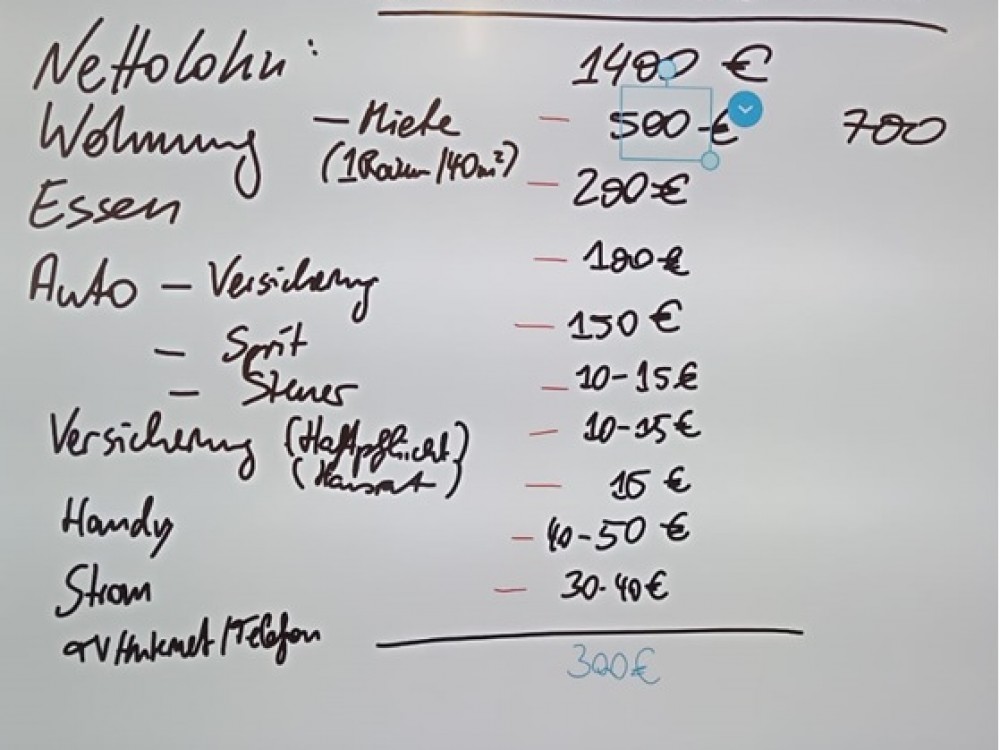 Nettolohn: 1400 €
Wohnung – Miete – 500 € 700
(1 Raum/40m²)
Essen – 200 €
Auto – Versicherung – 100 €
– Sprit – 150 €
– Steuer – 10-15 €
Versicherung (Haftpflicht) – 10-15 €
(Hausrat)
Handy – 15 €
Strom – 40-50 €
TV/Internet/Telefon – 30-40 €
300 €